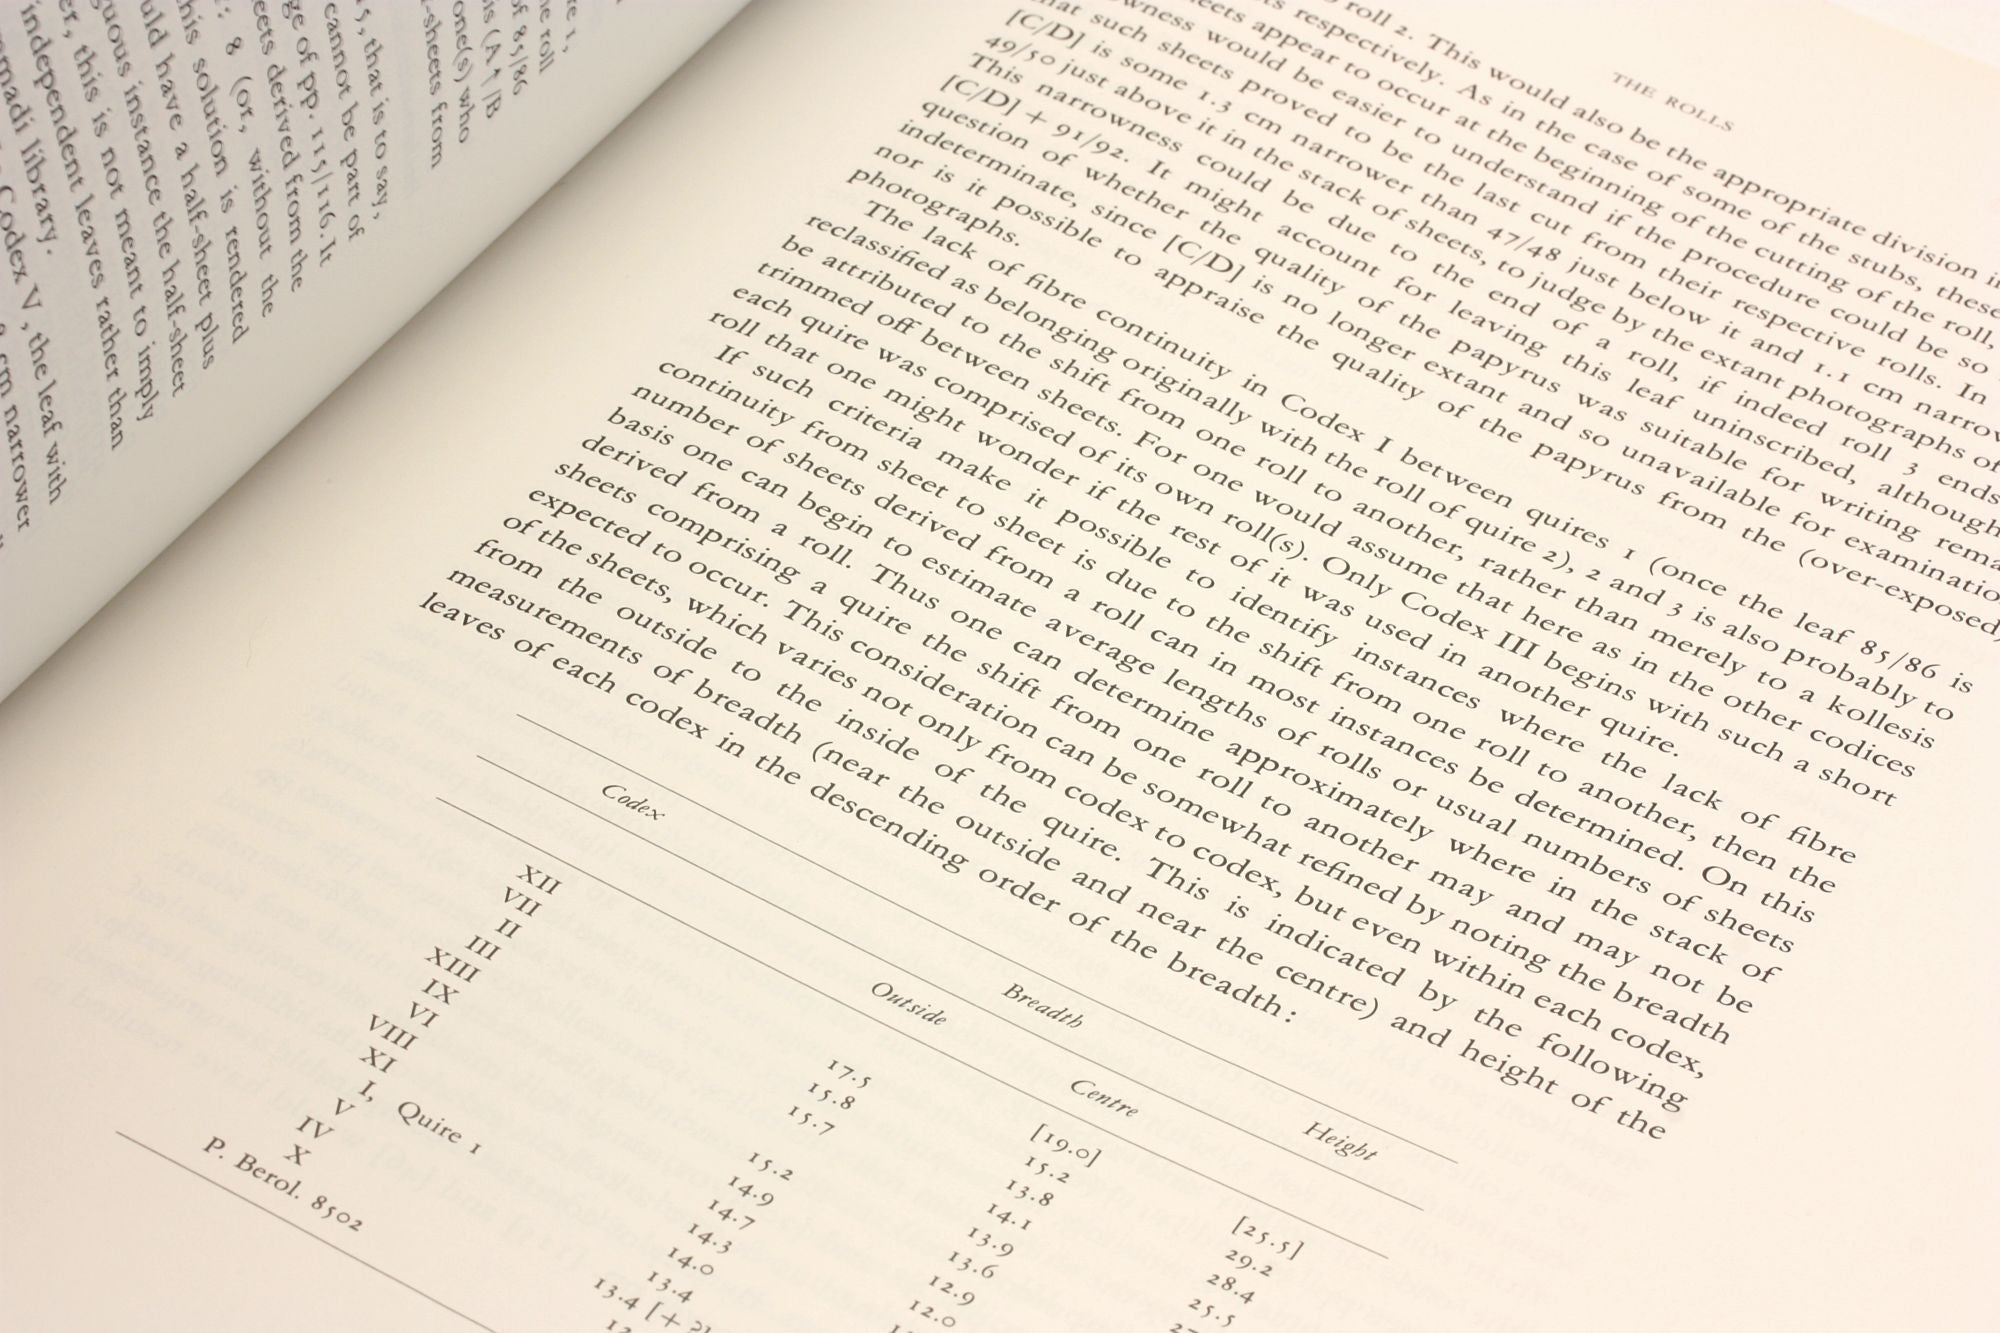 re 1,
he roll
of 85/86
is (A¶/B
one(s) who
-sheets from
5, that is to say,
cannot be part of
ge of pp. 115/116. It
eets derived from the
: 8 (or, without the
his solution is rendered
uld have a half-sheet plus
guous instance the half-sheet
er, this is not meant to imply
independent leaves rather than
madi library.
Codex V, the leaf with
cm narrower
THE ROLLS
roll 2. This would also be the appropriate division i
ts respectively. As in the case of some of the stubs, these
eets appear to occur at the beginning of the cutting of the roll,
wness would be easier to understand if the procedure could be so
hat such sheets proved to be the last cut from their respective rolls. In
[C/D] is some 1.3 cm narrower than 47/48 just below it and 1.1 cm narrow
49/50 just above it in the stack of sheets, to judge by the extant photographs of
This narrowness could be due to the end of a roll, if indeed roll 3 ends
[C/D] + 91/92. It might account for leaving this leaf uninscribed, although
question of whether the quality of the papyrus was suitable for writing rema
indeterminate, since [C/D] is no longer extant and so unavailable for examinatio
nor is it possible to appraise the quality of the papyrus from the (over-exposed)
photographs.
The lack of fibre continuity in Codex I between quires 1 (once the leaf 85/86 is
reclassified as belonging originally with the roll of quire 2), 2 and 3 is also probably to
be attributed to the shift from one roll to another, rather than merely to a kollesis
trimmed off between sheets. For one would assume that here as in the other codices
each quire was comprised of its own roll(s). Only Codex III begins with such a short
roll that one might wonder if the rest of it was used in another quire.
If such criteria make it possible to identify instances where the lack of fibre
continuity from sheet to sheet is due to the shift from one roll to another, then the
number of sheets derived from a roll can in most instances be determined. On this
basis one can begin to estimate average lengths of rolls or usual numbers of sheets
derived from a roll. Thus one can determine approximately where in the stack of
sheets comprising a quire the shift from one roll to another may and may not be
expected to occur. This consideration can be somewhat refined by noting the breadth
of the sheets, which varies not only from codex to codex, but even within each codex,
from the outside to the inside of the quire. This is indicated by the following
measurements of breadth (near the outside and near the centre) and height of the
leaves of each codex in the descending order of the breadth:
Codex Breadth Height
Outside Centre
XII [19.0] [25.5]
VII 17.5 15.2 29.2
II 15.8 13.8 28.4
III 15.7 14.1 25.5
XIII 13.9
IX 15.2 13.6
VI 14.9 12.9
VIII 14.7 12.0
XI 14.3
I, Quire 1 14.0
V 13.4
IV 13.4 [+ ?]
X
P. Berol. 8502